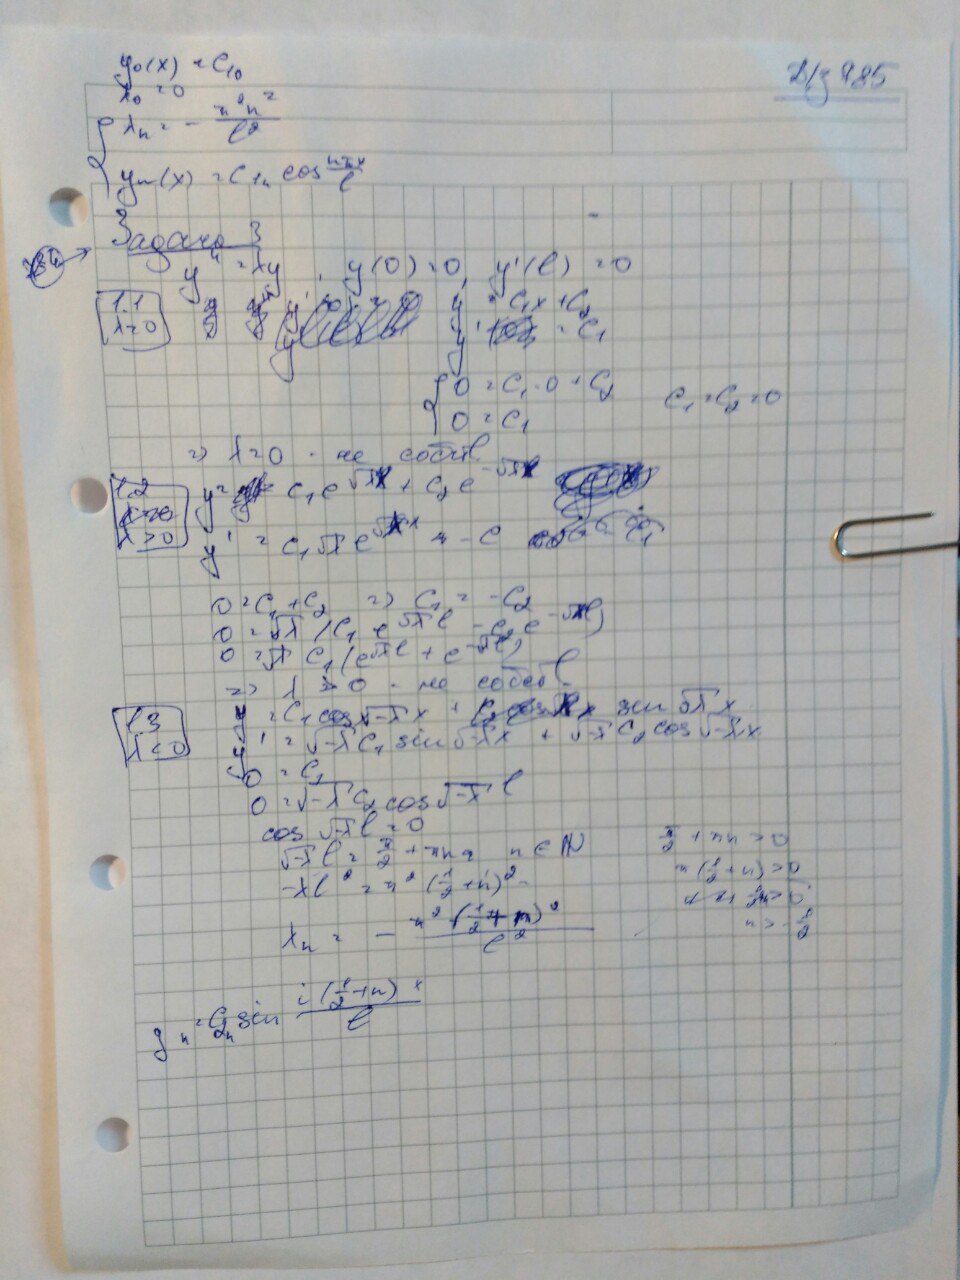 y₀(x) = C₁₀
Д/з 985
λ₀ = 0
λₙ = - π²n² / l²
yₙ(x) = C₁ₙ cos nπx / l
Задача 3
y'' = λy, y(0) = 0, y'(l) = 0
1.1 λ=0
y = C₁x + C₂
y' = C₁
0 = C₁·0 + C₂
0 = C₁
C₁ = C₂ = 0
=> λ=0 - не собств
1.2 λ>0
y = C₁e^√λx + C₂e^-√λx
y' = C₁√λ e^√λx
0 = C₁ + C₂ => C₁ = -C₂
0 = √λ (C₁ e^√λl - C₂ e^-√λl)
0 = √λ C₁ (e^√λl + e^-√λl)
=> λ > 0 - не собств
1.3 λ<0
y = C₁ cos √-λ x + sin √-λ x
y' = √-λ C₁ sin √-λ x + √-λ C₂ cos √-λ x
0 = C₁
0 = √-λ C₂ cos √-λ l
cos √-λ l = 0
√-λ l = π/2 + πn, n ∈ N
-λl² = π² (1/2 + n)²
λₙ = - π² (1/2 + n)² / l²
π/2 + πn > 0
π (1/2 + n) > 0
n > -1/2
yₙ = C₂ₙ sin (1/2 + n) x / l